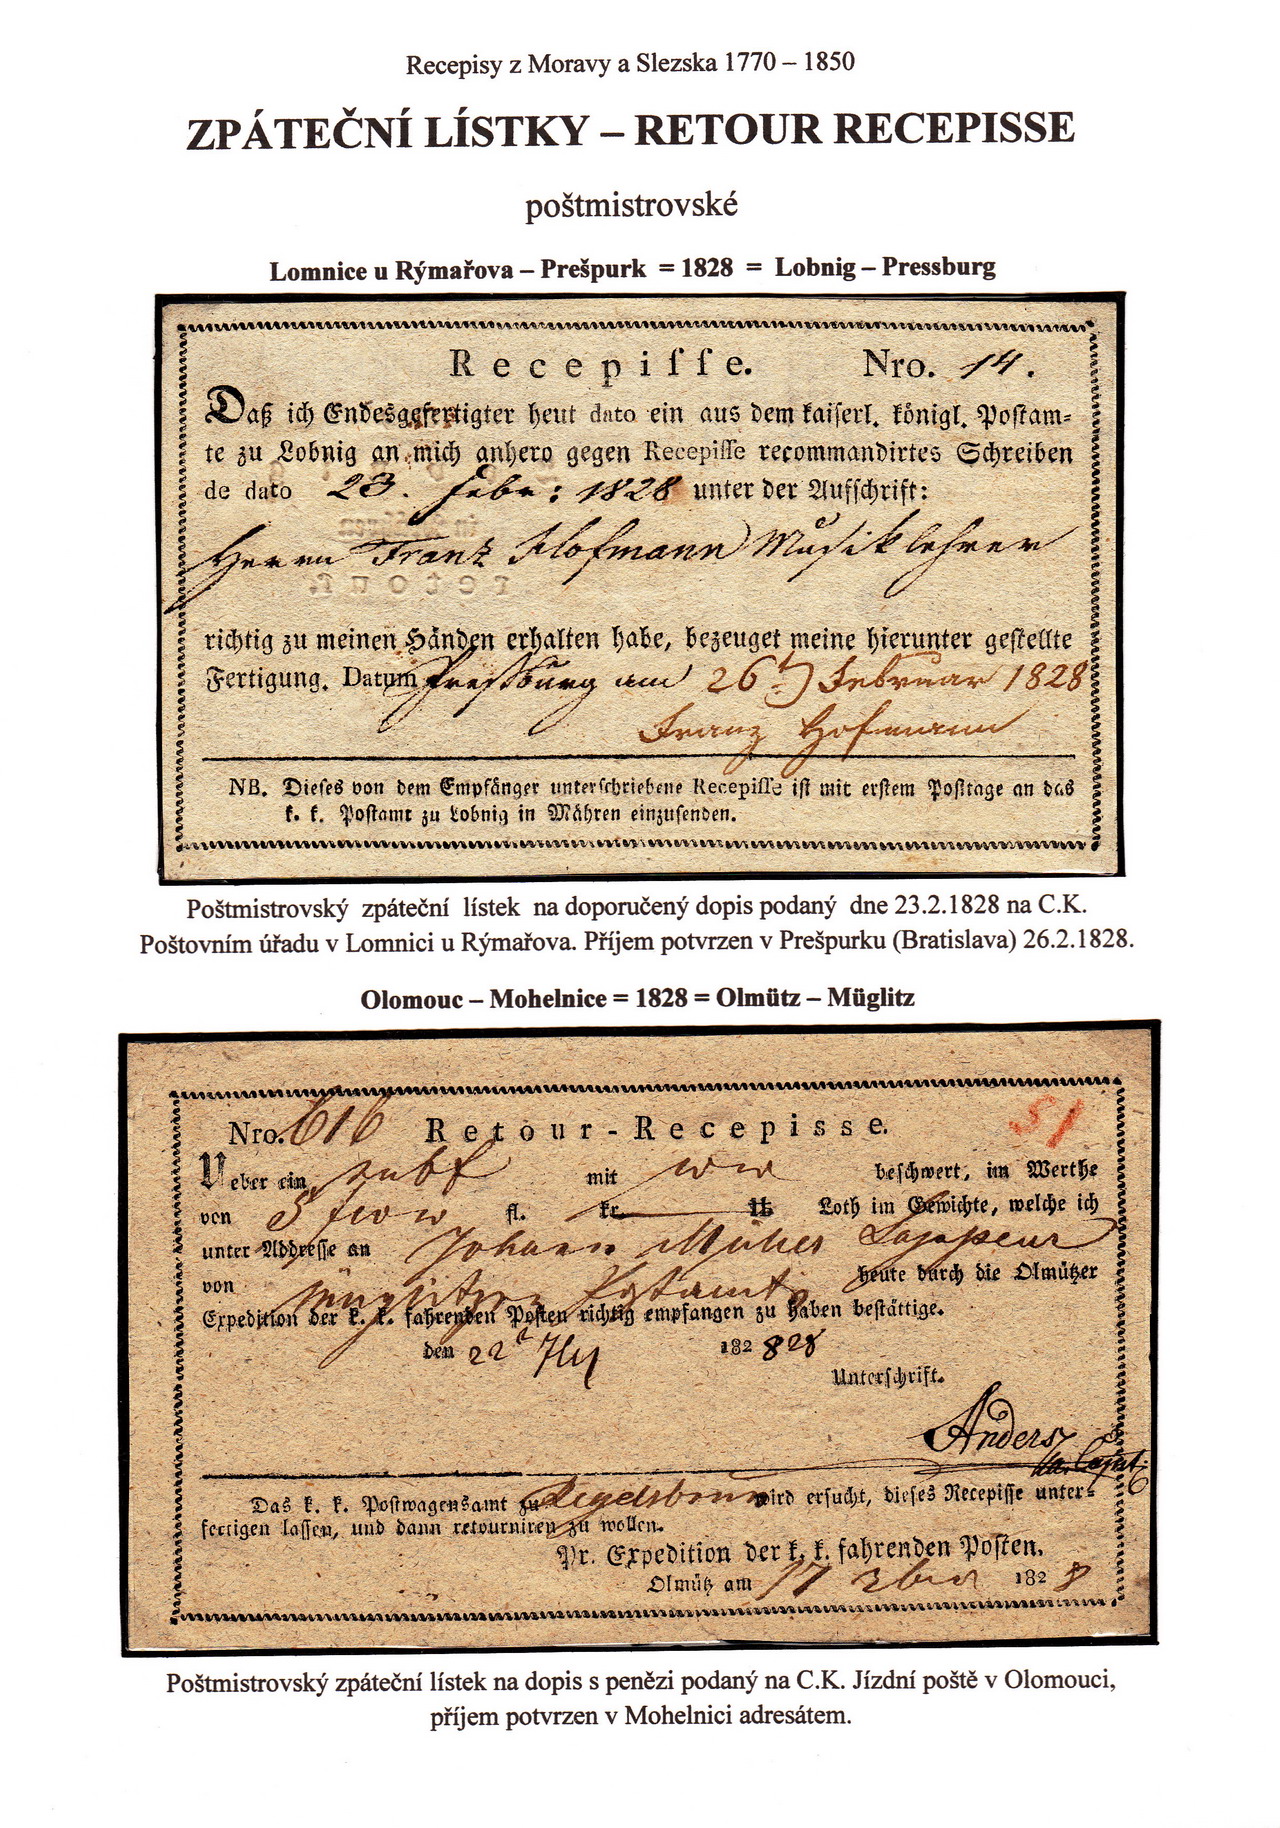 Recepisy z Moravy a Slezska 1770 – 1850
ZPÁTEČNÍ LÍSTKY – RETOUR RECEPISSE
poštmistrovské
Lomnice u Rýmařova – Prešpurk = 1828 = Lobnig – Pressburg
Recepiſſe. Nro. 14.
Daß ich Endesgefertigter heut dato ein aus dem kaiſerl. königl. Poſtam-
te zu Lobnig an mich anhero gegen Recepiſſe recommandirtes Schreiben
de dato 23. Febr: 1828 unter der Aufſchrift:
Herrn Franz Hofmann Muſiklehrer
richtig zu meinen Händen erhalten habe, bezeuget meine hierunter geſtellte
Fertigung. Datum Preſsburg am 26 Februar 1828
Franz Hofmann
NB. Dieſes von dem Empfänger unterſchriebene Recepiſſe iſt mit erſtem Poſttage an das
k. k. Poſtamt zu Lobnig in Mähren einzuſenden.
Poštmistrovský zpáteční lístek na doporučený dopis podaný dne 23.2.1828 na C.K.
Poštovním úřadu v Lomnici u Rýmařova. Příjem potvrzen v Prešpurku (Bratislava) 26.2.1828.
Olomouc – Mohelnice = 1828 = Olmütz – Müglitz
Nro. 616 Retour-Recepisse. 51
Ueber ein mit beschwert, im Werthe
von 5 fl. kr. tt Loth im Gewichte, welche ich
unter Addreſſe an Johann
von Müglitzer Postamt heute durch die Olmützer
Expedition der k. k. fahrenden Poſten richtig empfangen zu haben beſtättige.
den 22 182 828
Unterſchrift.
Anders
Das k. k. Poſtwagensamt zu wird erſucht, dieſes Recepiſſe unter-
fertigen laſſen, und dann retourniren zu wollen.
Pr. Expedition der k. k. fahrenden Poſten.
Olmütz am 17 182 8
Poštmistrovský zpáteční lístek na dopis s penězi podaný na C.K. Jízdní poště v Olomouci,
příjem potvrzen v Mohelnici adresátem.